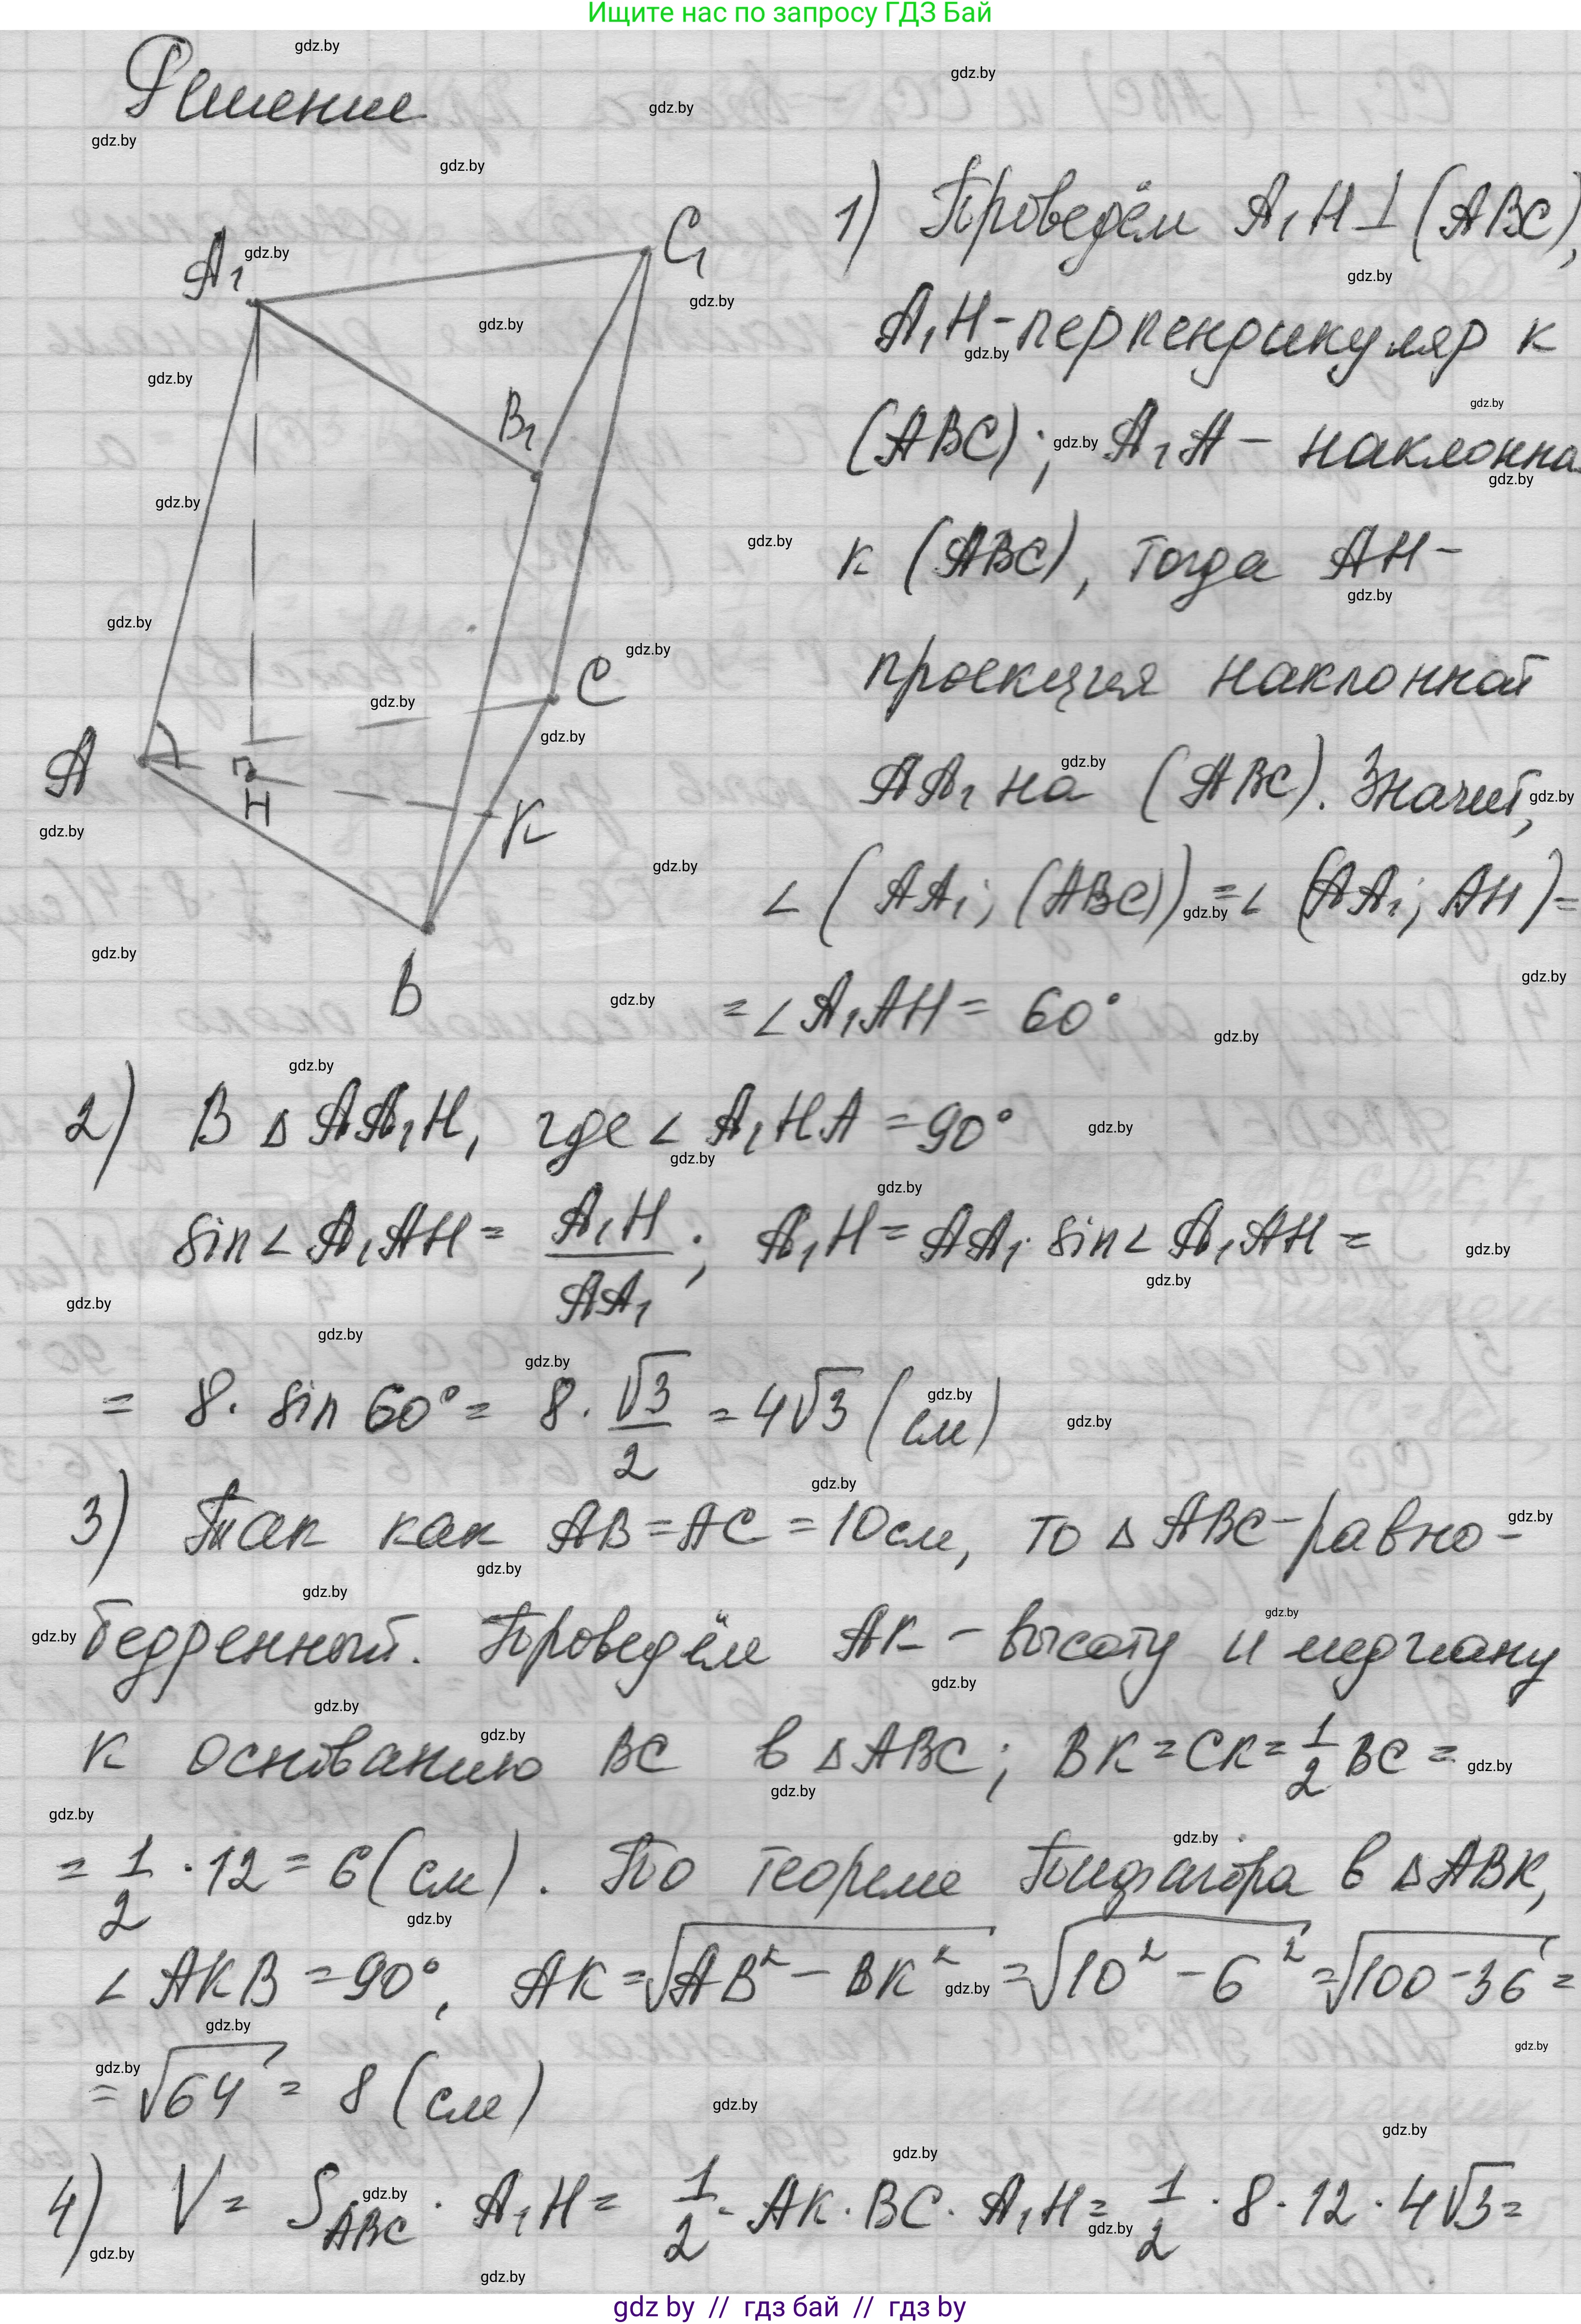 Ищите нас по запросу ГДЗ Бай
Решение
A₁
C₁
B₁
C
A
H
K
B
1) Проведём A₁H⊥(ABC),
A₁H-перпендикуляр к
(ABC); A₁A - наклонная
к (ABC), тогда AH-
проекция наклонной
AA₁ на (ABC). Значит,
∠(AA₁; (ABC)) = ∠(AA₁; AH)=
=∠A₁AH = 60°
2) В ΔAA₁H, где ∠A₁HA = 90°
sin∠A₁AH = A₁H/AA₁; A₁H = AA₁·sin∠A₁AH =
= 8·sin 60° = 8·√3/2 = 4√3 (см)
3) Так как AB=AC=10см, то ΔABC-равно-
бедренный. Проведём AK - высоту и медиану
к основанию BC в ΔABC; BK=CK=1/2 BC =
= 1/2·12 = 6 (см). По теореме Пифагора в ΔABK,
∠AKB=90°, AK=√(AB²-BK²)=√(10²-6²)=√(100-36)=
=√64 = 8 (см)
4) V = S_ABC · A₁H = 1/2·AK·BC·A₁H = 1/2·8·12·4√3=
gdz by // гдз бай // гдз by